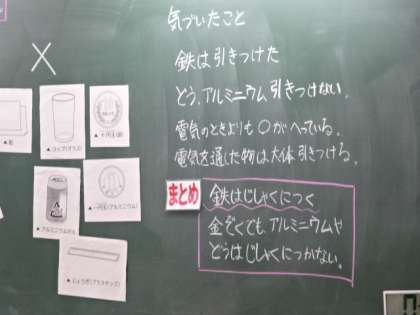 気づいたこと
鉄は引きつけた
どう、アルミニウム引きつけない。
電気のときよりも○がへっている。
電気を通した物は大体引きつける。
まとめ
鉄はじしゃくにつく
金ぞくでも、アルミニウムや
どうはじしゃくにつかない。
×
▲コップ(ガラス)
▲十円玉(銅)
▲アルミニウムかん
▲一円玉(アルミニウム)
▲じょうぎ(プラスチック)